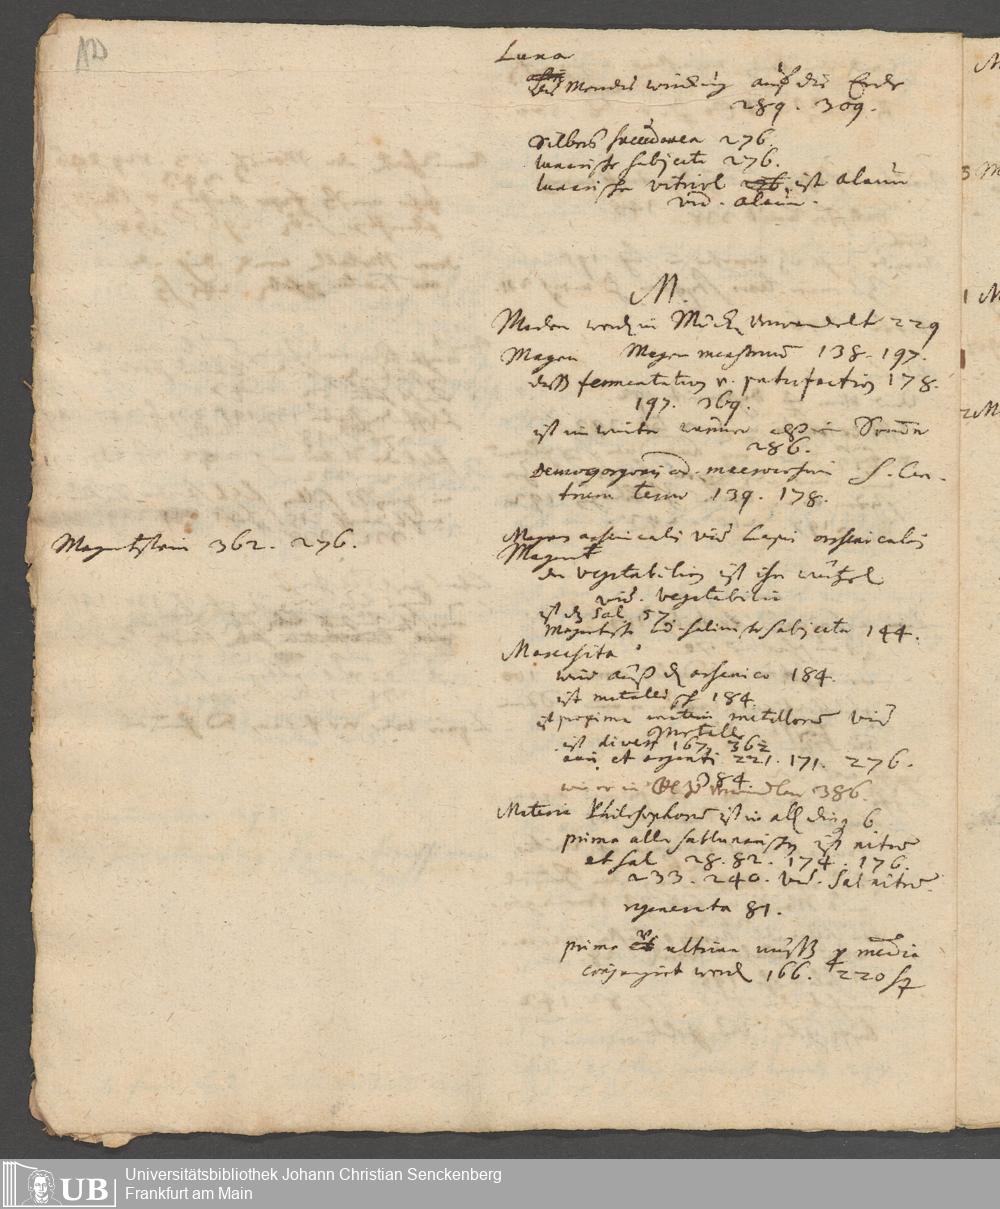 Luna
des Mondes würckung auf die Erde
289. 309.
Silbers succedanea 276.
lunarische subjecta 276.
lunarischer vitriol ist Alaun
vid. alaun.
M.
Maden werden in Mücken verwandelt 229
Magen Magen menstruum 138. 197.
deß fermentation v. putrefaction 178.
197. 369.
ist im winter wärmer alß im Sommer
286.
Demogorgonis od. macrocosmi s. Cen-
trum terrae 139. 178.
Magnetstein 362. 276.
Magnes arsenicalis vid Lapis arsenicalis
Magnet
der vegetabilien ist ihr wurtzel
vid. vegetabilia
ist das Sal 57
Magnetische salinische subjecta 144.
Marchsita
wird auß dem arsenico 184.
ist metallisch 184.
ist proxima materia metallorum vid
Metalle
ist divers 167. 362
auri et argenti 221. 171. 276.
184
386.
Materia Philosophorum ist in allen dingen 6
prima aller sublunarischen ist nitrum
et sal 28. 82. 174. 176.
233. 240. vid. Sal nitrum.
regenerata 81.
prima et ultima muß per media
conjungirt werden 166. 220 sq
M
3 M
1 M
2 M
Universitätsbibliothek Johann Christian Senckenberg
Frankfurt am Main
UB